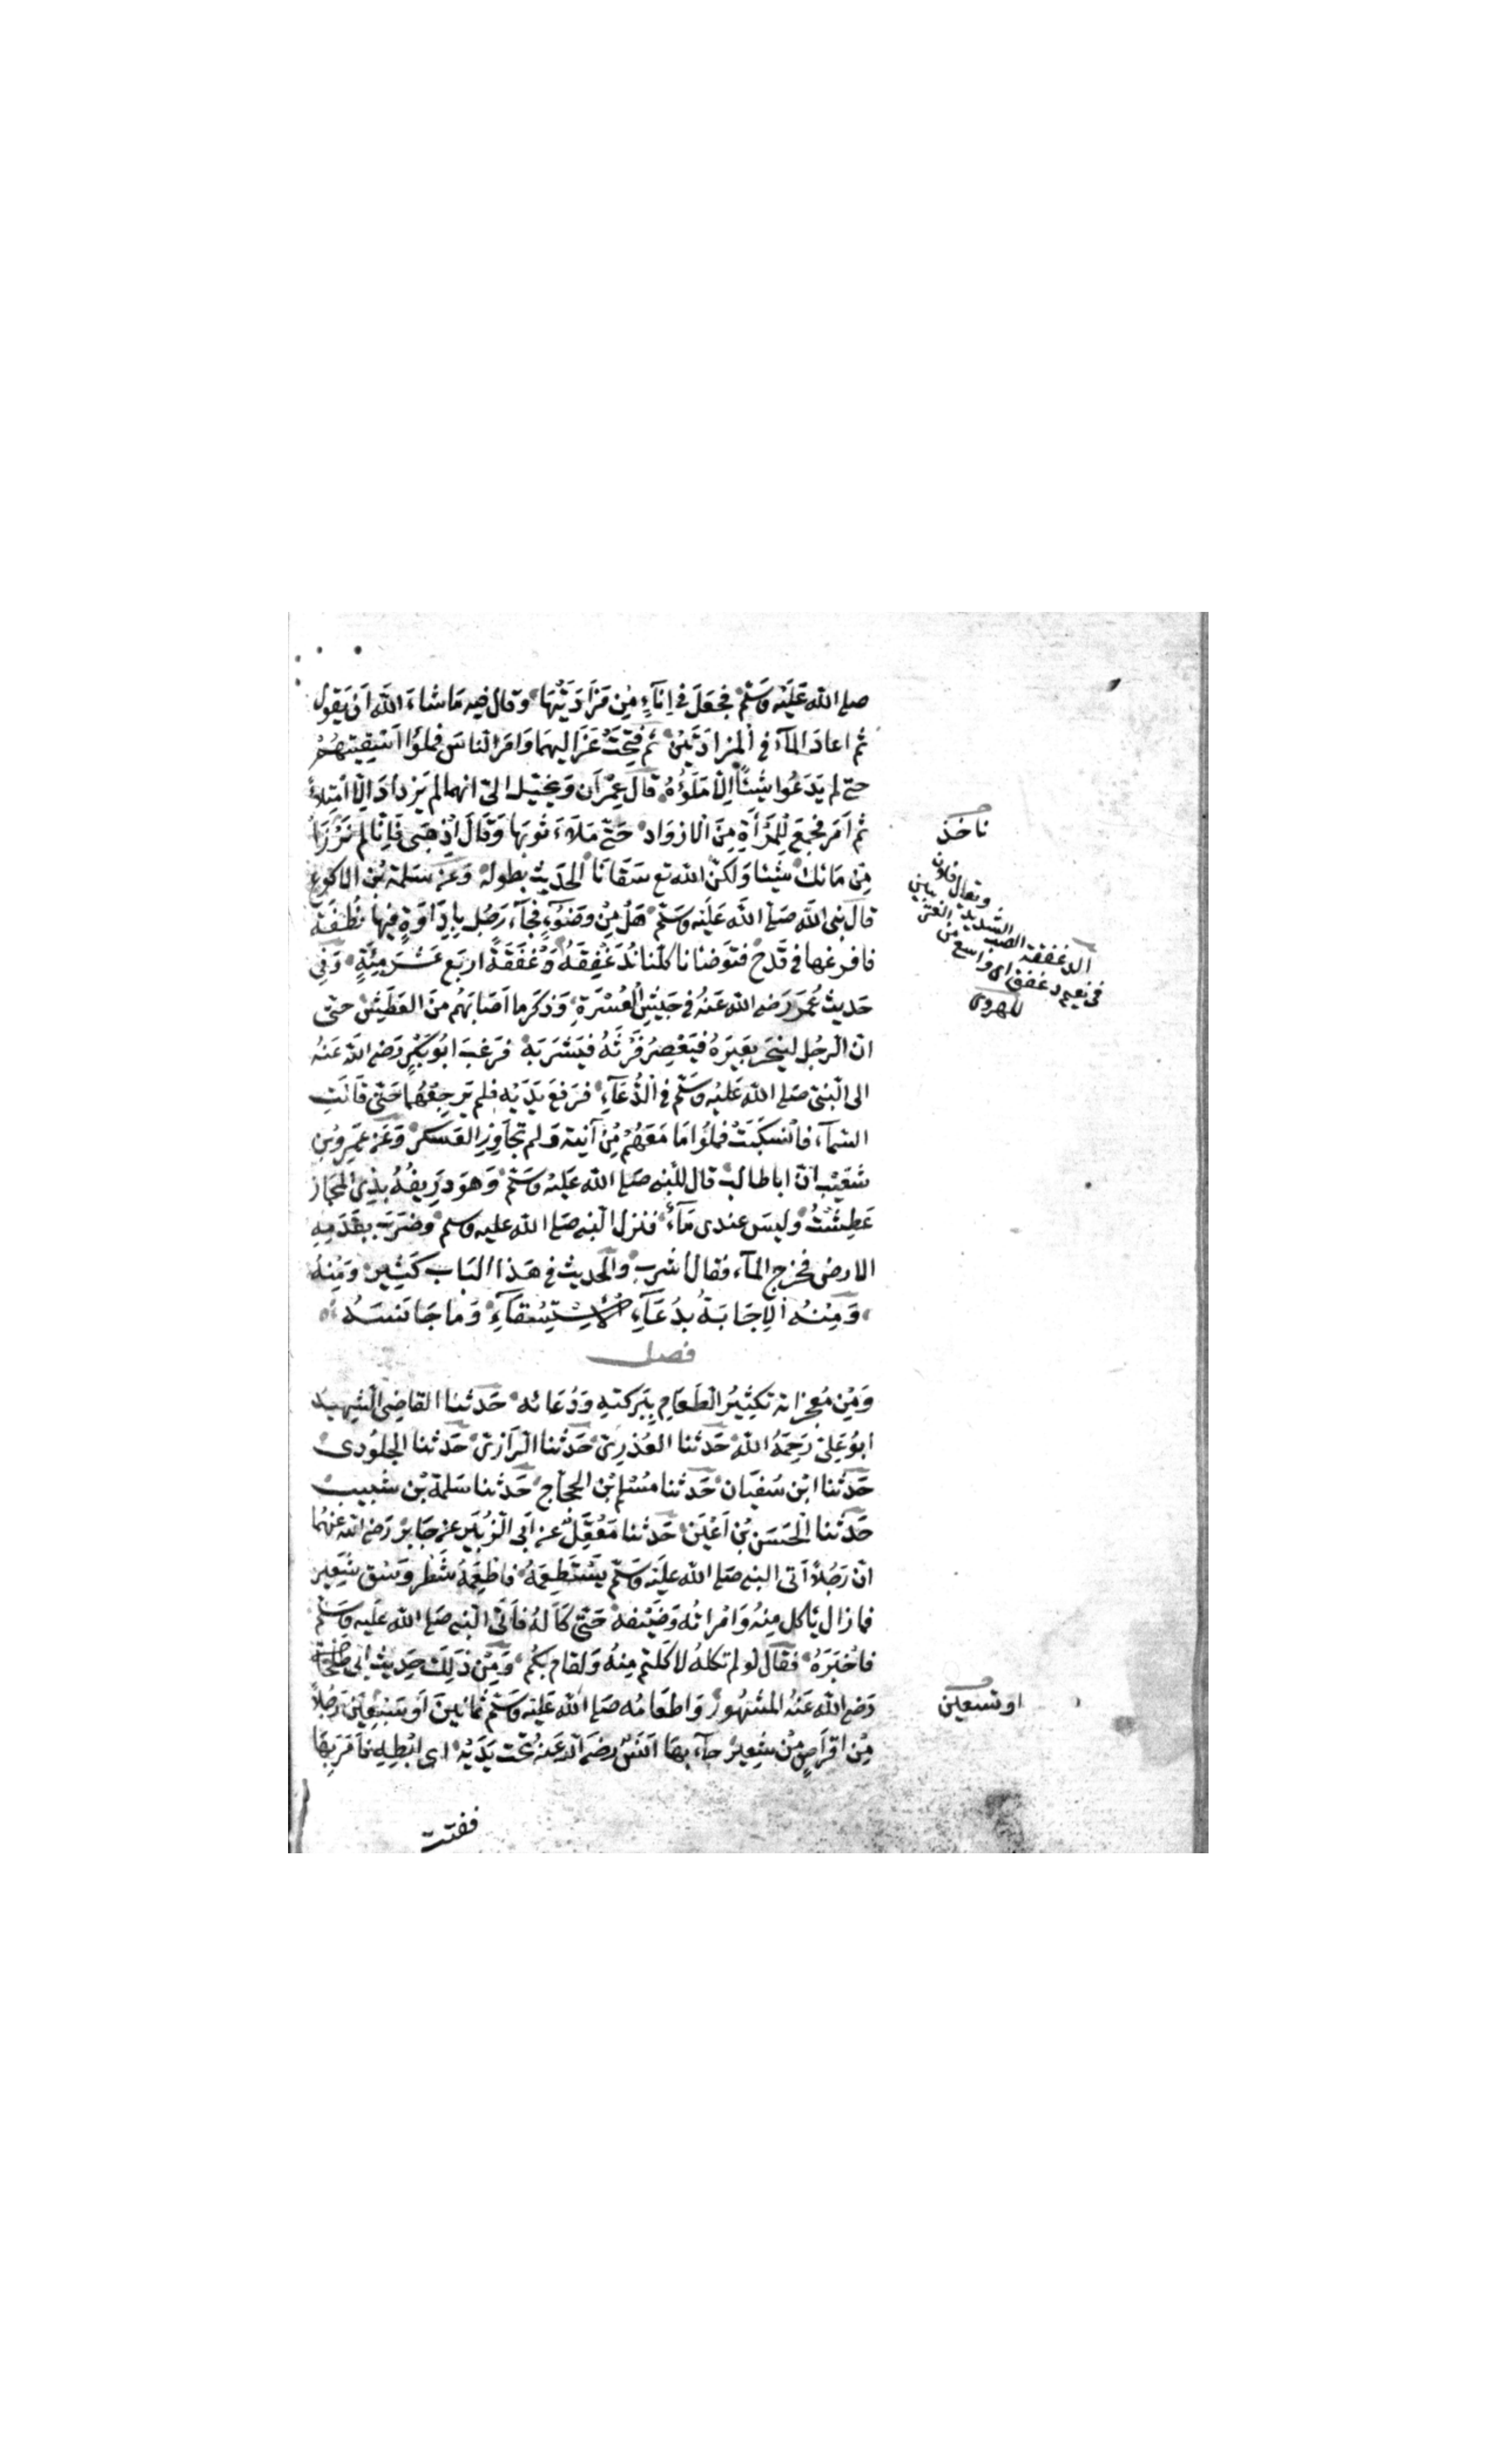 صلى الله عَلَيْه وَسَلّم فجعَلَ في اِنَاءٍ مِن مَزادَتَيْهَا وقال فيه مَا شاءَ الله اَنْ يَقول
ثم اعادَ الماءَ في المزادَتَيْن ثم فُتِحَتْ عَزَاليهمَا وَامَرَ الناسَ فملَؤا اَسْقِيَتَهُمْ
حتى لم يَدَعُوا شيئًا اِلّا مَلَؤُهُ قالَ عِمْرَان وَيخيّل الىّ انهما لم يَزدادَا اِلّا امتِلاءً
ثم اَمَرَ فجمعَ لِلْمَرْأَةِ مِنَ الازوَاد حَتّى مَلَاءَ ثوبَهَا وَقالَ اذهَبى فَاِنّا لم نَرْزَأْ
مِن مَائك شيئا وَلكنّ الله تع سَقَانَا الحديث بطوله وَعَن سَلمة بْن الاكوع
قالَ نبىّ اللّه صَلى اللّه عَلَيْه وَسَلم هَلْ مِنْ وضوءٍ فجاءَ رَجُل بِاِدَاوَةٍ فيها نطفَة
فافرغها في قدح فتوَضانا كلّنا نُدَغْفِقهُ دَغْفَقَةً اربَع عَشَرَ مِئَةٍ وَفِي
حَديث عُمَرَ رَضى الله عَنهُ في جَيْشِ العُسْرَةِ وَذكرَ ما اَصَابَهُم مِنَ العَطَش حتى
انّ الرجُل لينحَر بعِيَرهُ فيَعْصِرُ فَرْثَهُ فيَشْرَبَهُ فرَغبَ ابُو بَكْرٍ رَضى الله عَنهُ
الى النبيّ صَلى الله عَليه وَسَلّم في الدُّعَاءِ فرَفَعَ يَدَيْه فلم يَرجِعْهُمَا حَتى قالَتِ
السّماء فانسَكَبَتْ فملؤا مَا مَعَهُمْ مِن آنية وَلم تجَاوِزِ العَسكر وَعَن عَمْرِو بْنِ
شُعَيْب انّ ابا طالب قال للنبى صَلى الله عَليْه وَسَلّم وَهوَ رَديفُهُ بذِي المجاز
عَطِشْتُ وَليسَ عندى مَاءٌ فنزل النبى صَلى الله عليه وسلم وَضَرَبَ بقَدَمِهِ
الارض فخرَج الماء فقال اشرب وَالحديث في هَذا البَاب كَثير وَمِنهُ
وَمِنْهُ الاِجَابَةُ بدُعَاءِ الاِسْتِسْقاءِ وَما جَانَسَهُ
فصل
وَمِنْ مُعجزاته تكثيرُ الطَعَامِ بِبَركتهِ وَدُعَائه حَدثنا القاضِى الشهيدُ
ابُو عَلىّ رَحِمَهُ الله حَدثنا العُذرِىّ حَدثنا الرَازىّ حَدثنا الجلُودى
حَدثنا ابْن سُفيَان حَدثنا مُسْلم بْن الحجّاج حَدثنا سَلمة بْن شبيب
حَدثنا الحَسَن بْن اَعْيَن حَدثنا مَعْقِل عَن اَبى الزبَير عن جَابر رَضى الله عَنهُما
انّ رَجُلاً اَتى النبى صَلى الله عَليْه وَسَلّم يَسْتَطعِمَهُ فاَطْعَمَهُ شَطْر وَسْق شَعِير
فما زال يَاكل مِنهُ وَامْرَاتُه وَضَيْفه حَتى كَالهُ فاَتى النبى صَلى الله عَليه وَسَلّم
فاَخبَرَهُ فقال لو لم تكلهُ لاكلتم مِنهُ وَلقام بكُم وَمِنْ ذلك حَديث ابى طلحَة
رَضى الله عَنهُ المشهُور وَاطعَامُه صَلى الله عَليْه وَسَلّم ثمَانينَ اَو سَبْعِين رَجُلاً
مِنْ اقراَصٍ مِنْ شعِير جاءَ بهَا اَنَسٌ رضى الله عَنه تحت يَدَيْه اى ابْطِهِ فاَمَرَ بهَا
ففتت
ناخذ
ويقال فلان
الدغفقة الصبّ الشديد
في نعيم دغفق اى واسع من
للهروى
او تسعين